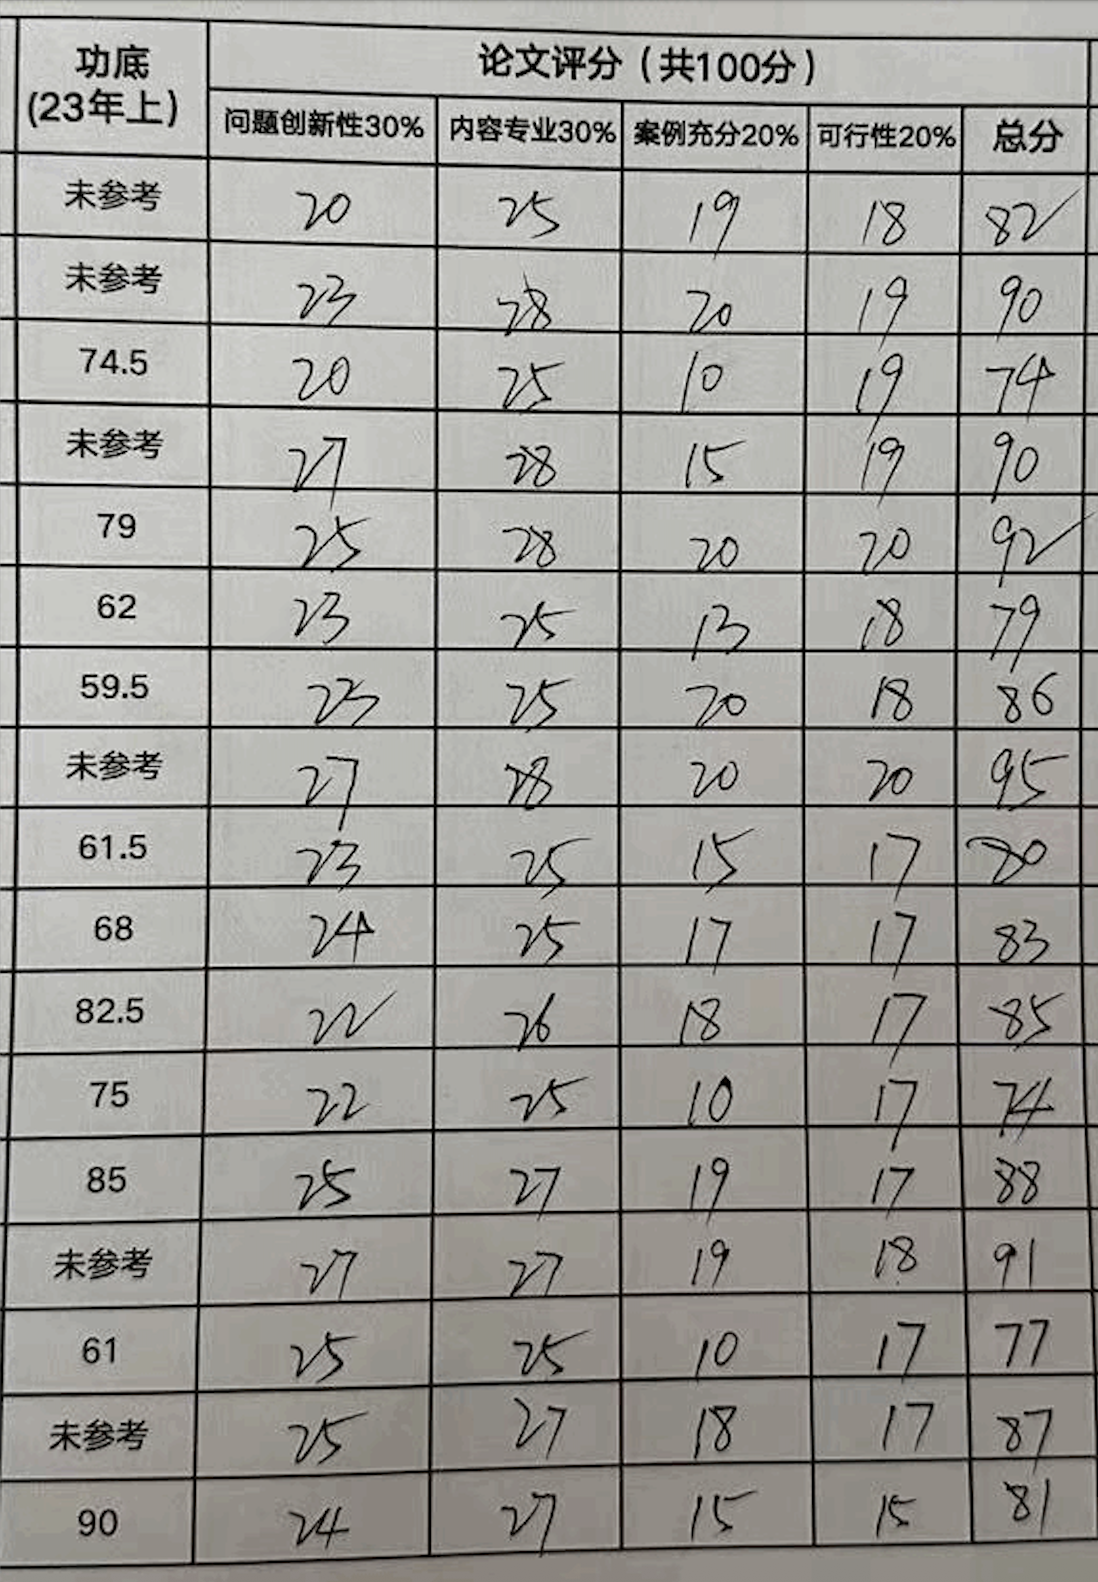 功底 论文评分（共100分）
(23年上) 问题创新性30% 内容专业30% 案例充分20% 可行性20% 总分
未参考 20 25 19 18 82
未参考 23 28 20 19 90
74.5 20 25 10 19 74
未参考 27 28 15 19 90
79 25 28 20 20 92
62 23 25 13 18 79
59.5 23 25 20 18 86
未参考 27 28 20 20 95
61.5 23 25 15 17 80
68 24 25 17 17 83
82.5 22 26 18 17 85
75 22 25 10 17 74
85 25 27 19 17 88
未参考 27 27 19 18 91
61 25 25 10 17 77
未参考 25 27 18 17 87
90 24 27 15 15 81